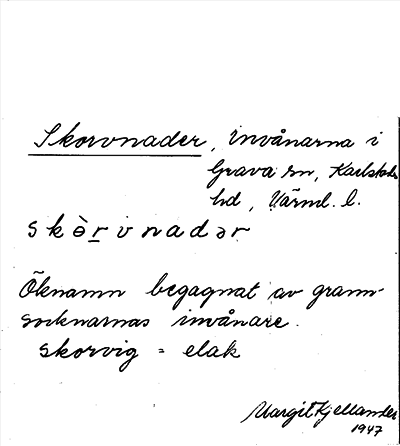 Skorvnader, invånarna i
Grava sn, Karlstads
hd, Värml. l.
skə̀rvnadər
Öknamn begagnat av grann-
socknarnas invånare.
skorvig = elak
Margit Kjellander
1947